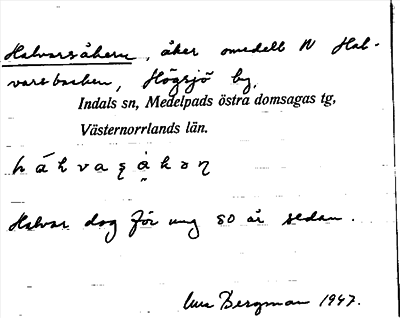 Halvarsåkern, åker omedelb N Hal-
varsbacken, Högsjö by,
Indals sn, Medelpads östra domsagas tg,
Västernorrlands län.
Halvar dog för ung 80 år sedan.
Bergman 1947.